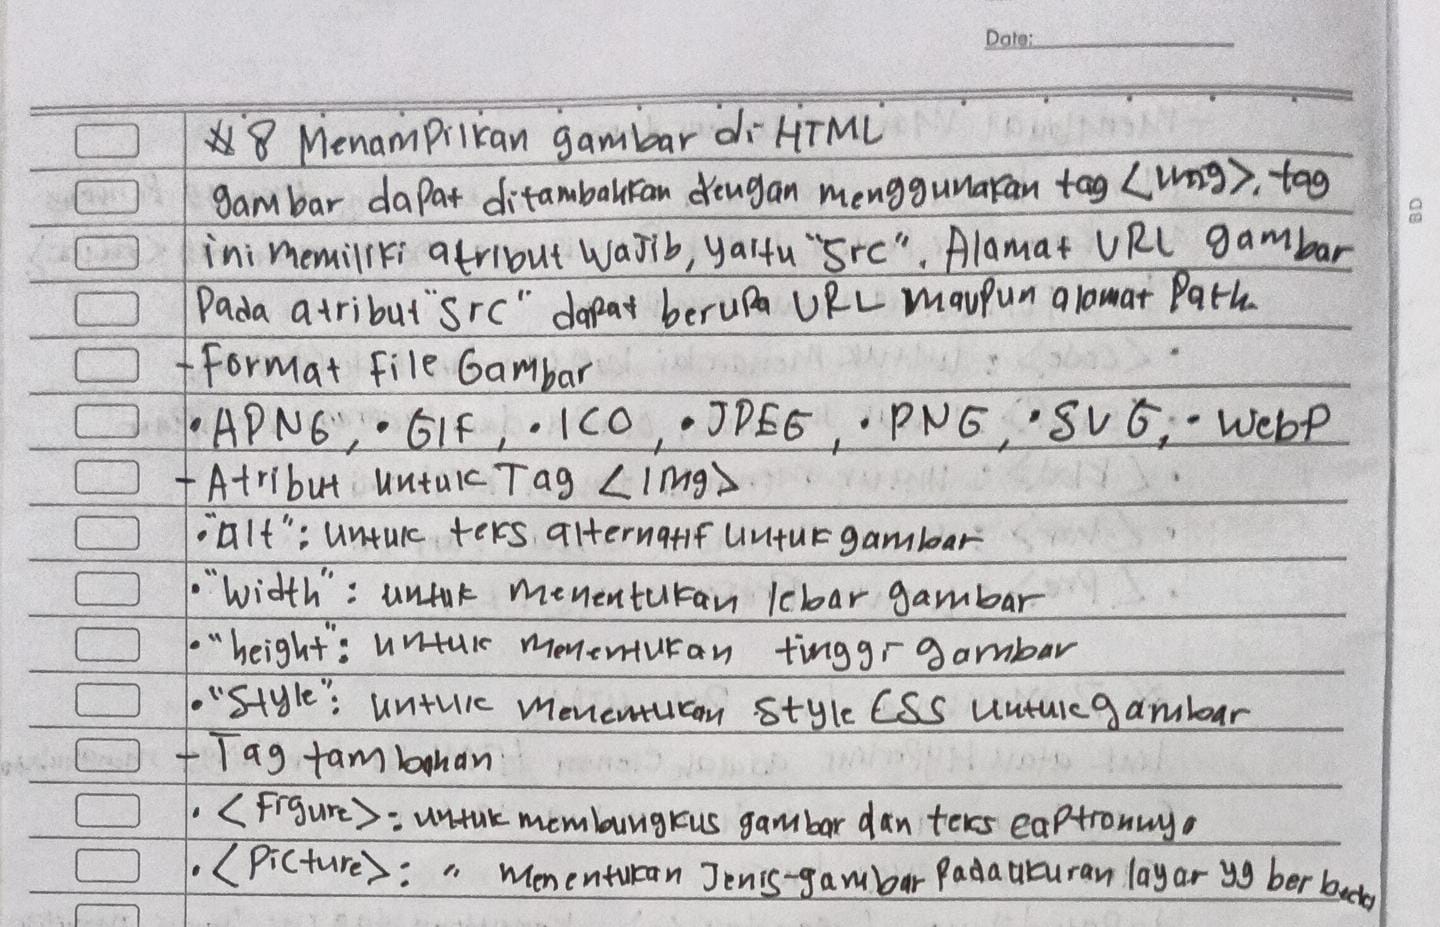 Date:
#8 Menampilkan gambar di HTML
gambar dapat ditambahkan dengan menggunakan tag <img>. tag
ini memiliki atribut wajib, yaitu "src". Alamat URL gambar
Pada atribut "src" dapat berupa URL maupun alamat Path
- Format File Gambar
• APNG, • GIF, • ICO, • JPEG, • PNG, • SVG, • WebP
- Atribut untuk Tag <img>
• "alt": untuk teks alternatif untuk gambar
• "width": untuk menentukan lebar gambar
• "height": untuk menentukan tinggi gambar
• "Style": untuk menentukan style CSS untuk gambar
- Tag tambahan
• <Figure>: untuk membungkus gambar dan teks captionnya
• <Picture>: " menentukan Jenis-gambar Pada ukuran layar yg berbeda
BD